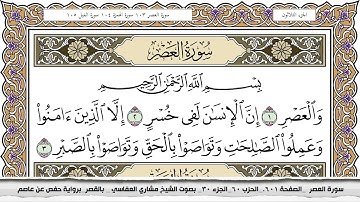 الجزء الثلاثون
سورة العصر ١٠٣ سورة الهمزة ١٠٤ سورة الفيل ١٠٥
سُورَةُ العَصْرِ
بِسْمِ اللَّهِ الرَّحْمَٰنِ الرَّحِيمِ
وَالْعَصْرِ ۝١ إِنَّ الْإِنسَٰنَ لَفِى خُسْرٍ ۝٢ إِلَّا الَّذِينَ ءَامَنُوا۟
وَعَمِلُوا۟ الصَّٰلِحَٰتِ وَتَوَاصَوْا۟ بِالْحَقِّ وَتَوَاصَوْا۟ بِالصَّبْرِ ۝٣
سورة العصر الصفحة ٦٠١، الحزب ٦٠ الجزء ٣٠ بصوت الشيخ مشاري العفاسي بالقصر برواية حفص عن عاصم